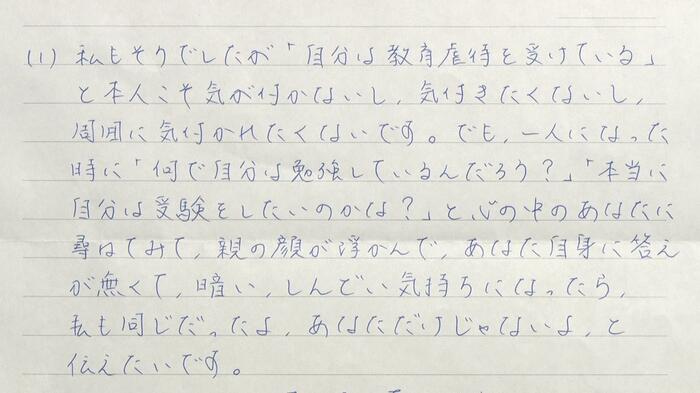 (1) 私もそうでしたが「自分は教育虐待を受けている」
と本人こそ気が付かないし、気付きたくないし、
周囲に気付かれたくないです。でも、一人になった
時に「何で自分は勉強しているんだろう？」「本当に
自分は受験をしたいのかな？」と、心の中のあなたに
尋ねてみて、親の顔が浮かんで、あなた自身に答え
が無くて、暗い、しんどい気持ちになったら、
私も同じだったよ、あなただけじゃないよ、と
伝えたいです。